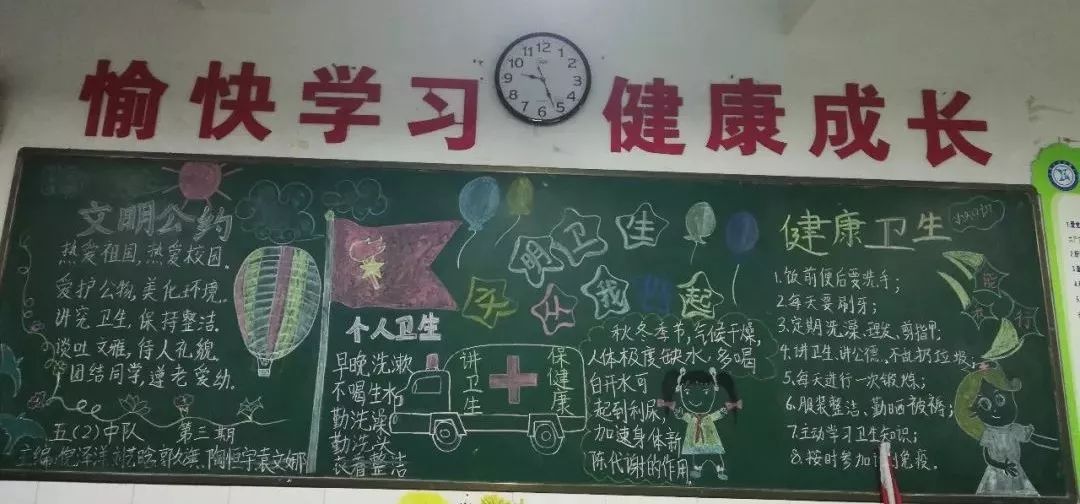 愉快学习 健康成长
12
11
10
9
8
7
6
5
4
3
2
1
文明公约
热爱祖国,热爱校园。
爱护公物,美化环境。
讲究卫生,保持整洁。
谈吐文雅,待人礼貌。
团结同学,遵老爱幼。
五(2)中队 第三期
个人卫生
早晚洗漱
不喝生水
勤洗澡
勤洗头
衣着整洁
讲卫生
保健康
明卫生
从我做起
秋冬季节,气候干燥,
人体极度缺水,多喝
白开水可
起到利尿、
加速身体新
陈代谢的作用
健康卫生
小知识
1.饭前便后要洗手;
2.每天要刷牙;
3.定期洗澡、理发、剪指甲;
4.讲卫生、讲公德、不乱扔垃圾;
5.每天进行一次锻炼;
6.服装整洁、勤晒被褥;
7.主动学习卫生知识;
8.按时参加计划免疫。